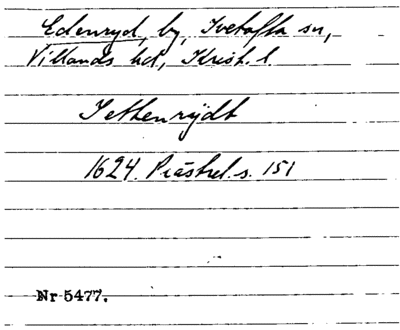 Edenryd, by, Ivetofta sn,
Villands hd, Krist. l.
I ethenrijdt
1624. Prästrel. s. 151
Nr 5477.